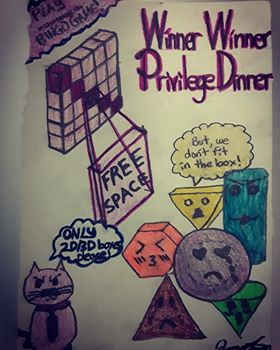 PLAY
BINGO GAME!
Winner Winner
Privilege Dinner
FREE
SPACE
But, we
don't fit
in the box!
ONLY
2D/3D boxes
please!